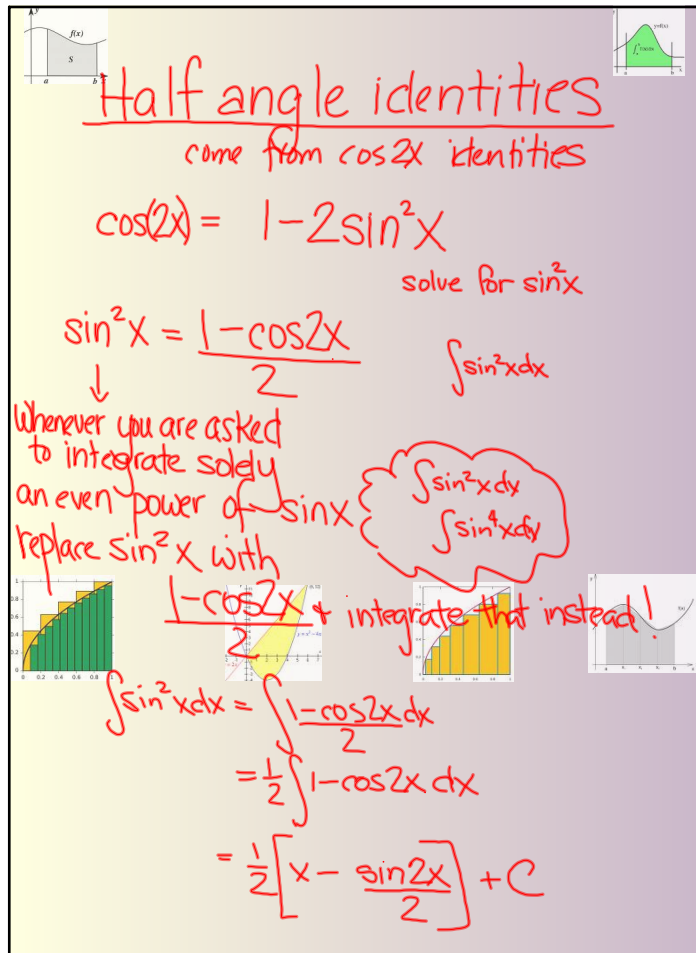 Half angle identities
come from cos2x identities
cos(2x) = 1-2sin²x
solve for sin²x
sin²x = (1-cos2x)/2
∫sin²xdx
↓
Whenever you are asked
to integrate solely
an even power of sinx
∫sin²xdx
∫sin⁴xdx
replace sin²x with
(1-cos2x)/2 + integrate that instead!
∫sin²xdx = ∫(1-cos2x)/2 dx
= 1/2 ∫1-cos2x dx
= 1/2[x - sin2x/2] + C
f(x)
S
a b
y
x
a b
f(x)
0.2 0.4 0.6 0.8 1
0.2 0.4 0.6 0.8 1